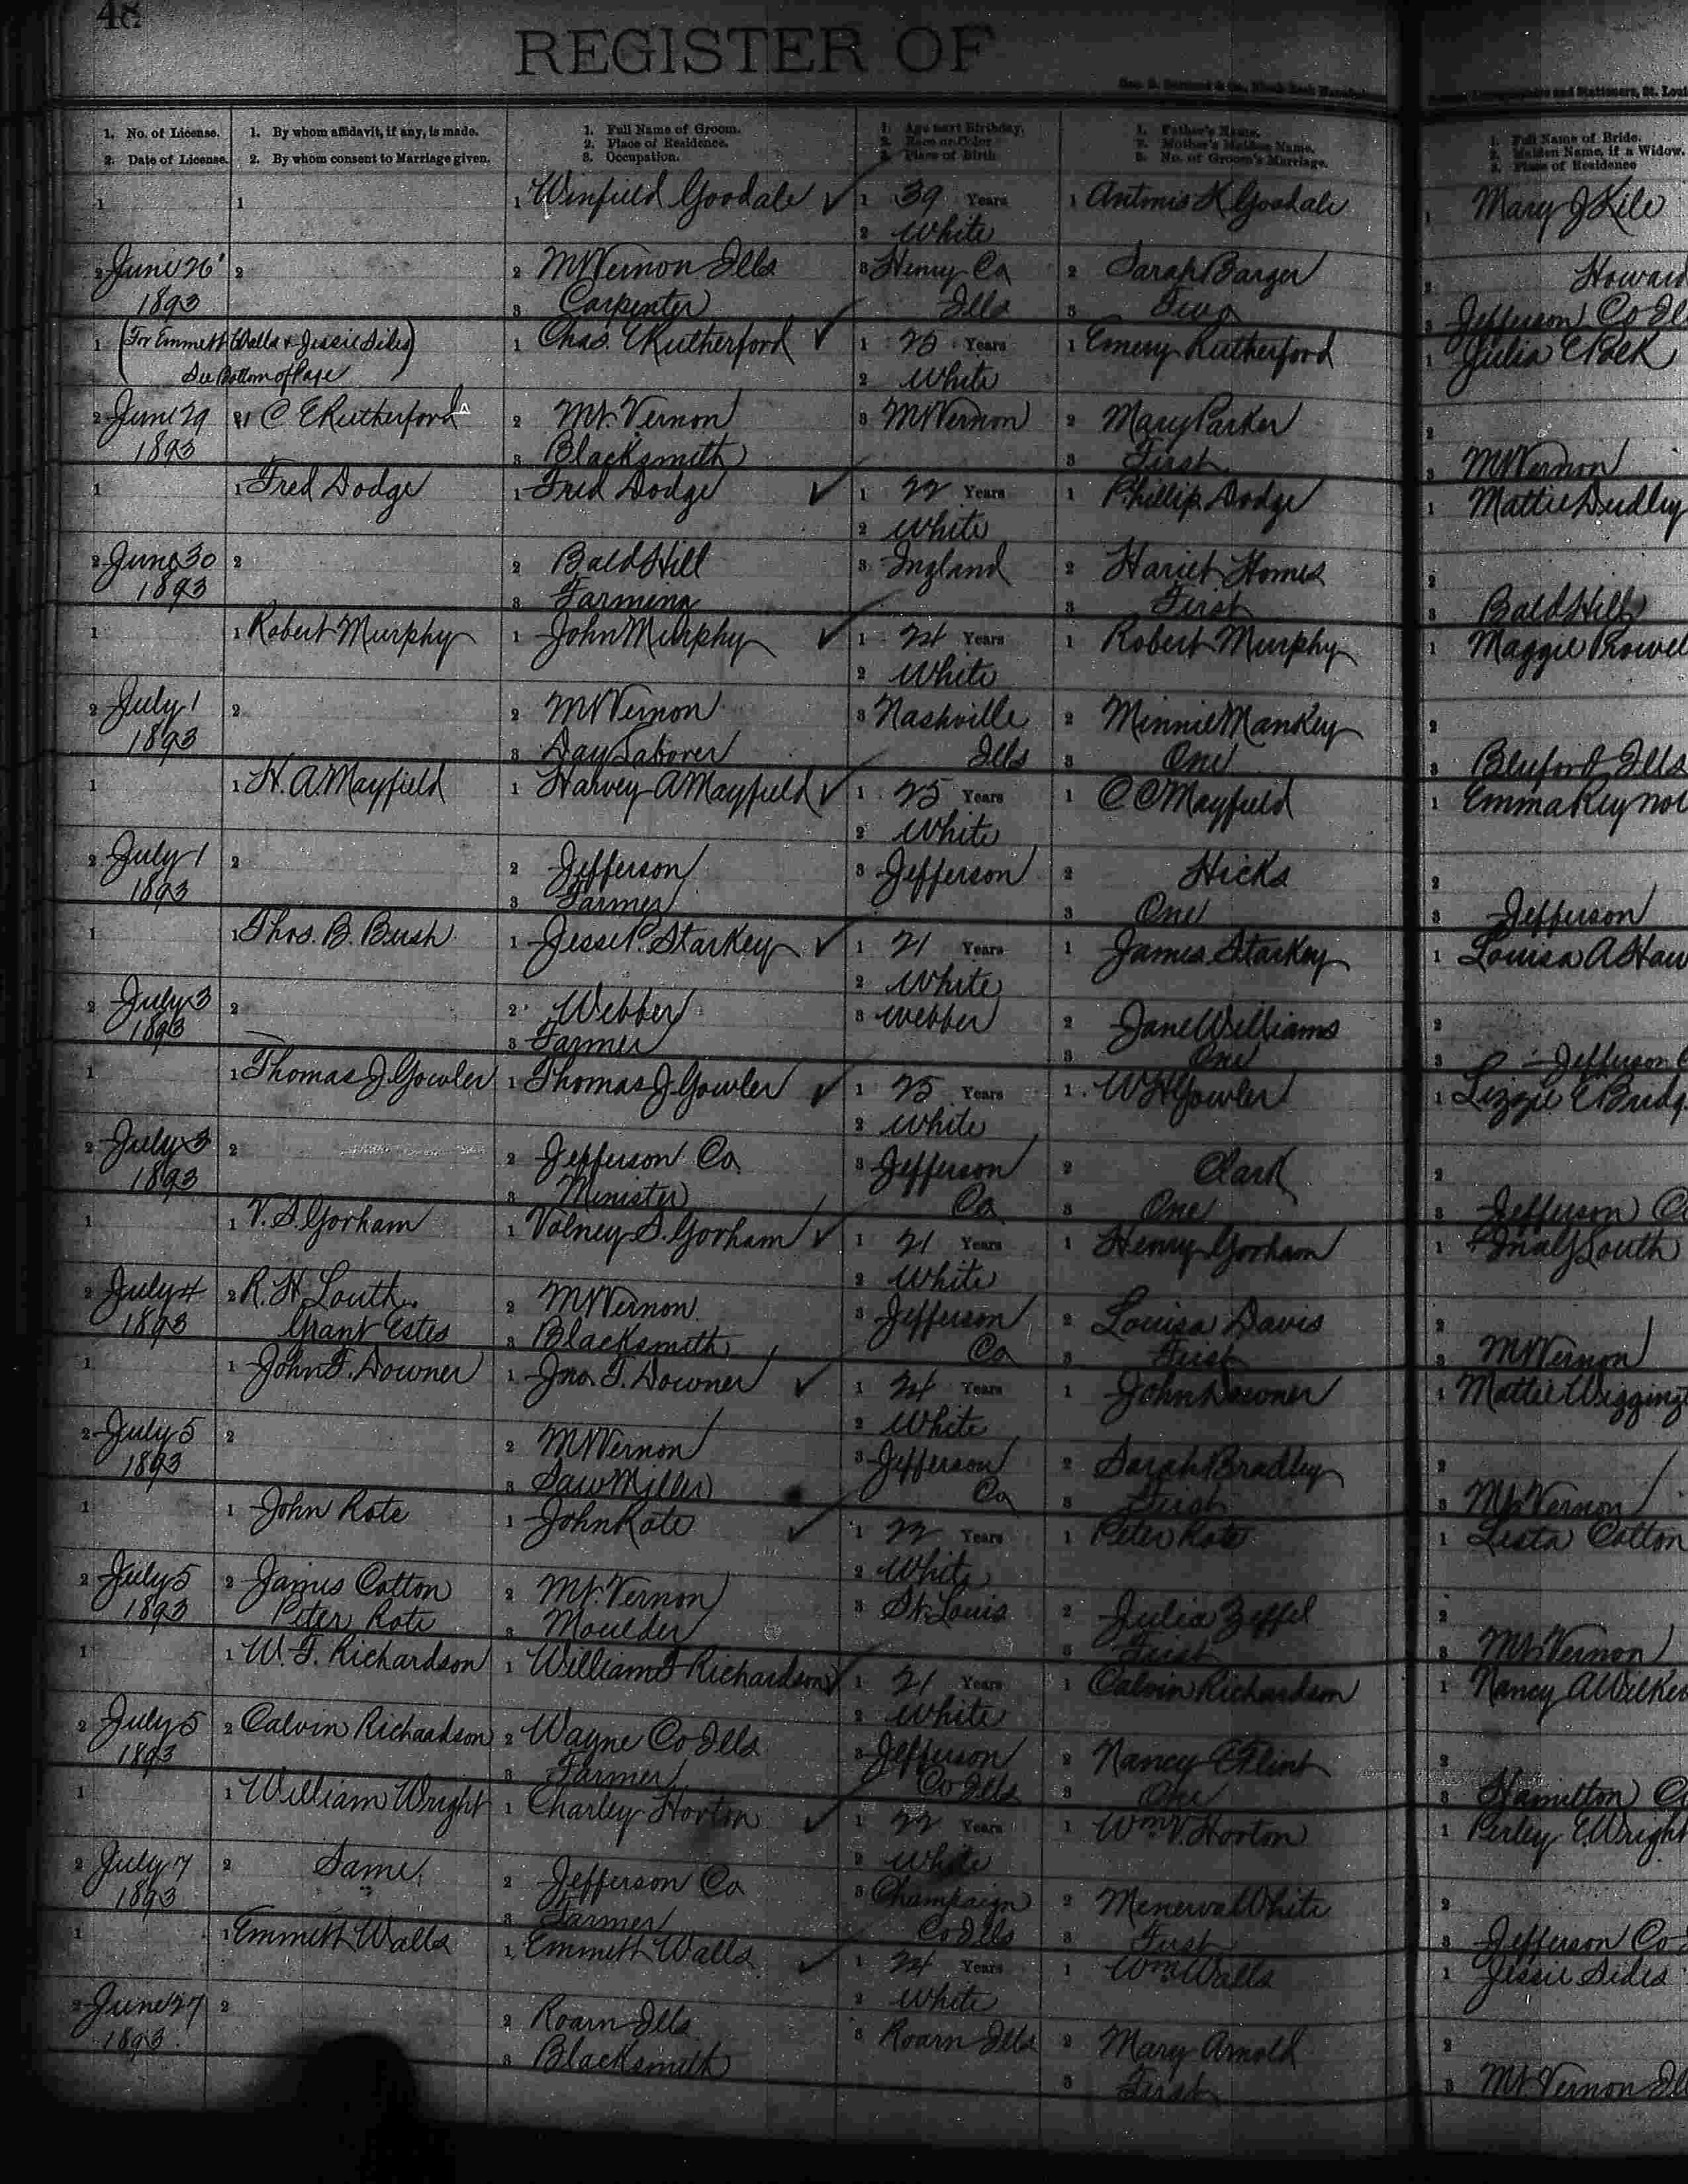 48
REGISTER OF
1. No. of License.
2. Date of License.
1. By whom affidavit, if any, is made.
2. By whom consent to Marriage given.
1. Full Name of Groom.
2. Place of Residence.
3. Occupation.
1. Age next Birthday.
2. Race or Color
3. Place of Birth
1. Father's Name.
2. Mother's Maiden Name.
3. No. of Groom's Marriage.
1. Full Name of Bride.
2. Maiden Name, if a Widow.
3. Place of Residence
1 1 1 Winfield Goodale ✓ 1 39 Years 1 Goodale 1 Mary J Kile
2 White
2 June 26 2 2 Mt Vernon Ills 3 Henry Co 2 Sarah Barger 2 Howard
1893 3 Carpenter Ills 3 Two 3 Jefferson Co Ill
1 (For Emmett Walls & Jessie Sides) 1 Chas. E Rutherford ✓ 1 25 Years 1 Emery Rutherford 1 Julia E Polk
See Bottom of Page 2 White
2 June 29 1 C E Rutherford 2 Mt. Vernon 3 Mt Vernon 2 Mary Parker 2
1893 3 Blacksmith 3 First 3 Mt Vernon
1 1 Fred Dodge 1 Fred Dodge ✓ 1 22 Years 1 Phillip Dodge 1 Mattie Dudley
2 White
2 June 30 2 2 Bald Hill 3 Ingland 2 Hariet Homes 2
1893 3 Farming 3 First 3 Bald Hill
1 1 Robert Murphy 1 John Murphy ✓ 1 24 Years 1 Robert Murphy 1 Maggie
2 White
2 July 1 2 2 Mt Vernon 3 Nashville 2 Minnie Mankey 2
1893 3 Day Laborer Ills 3 One 3 Bluford Ills
1 1 H. A. Mayfield 1 Harvey A Mayfield ✓ 1 25 Years 1 C C Mayfield 1 Emma Reynol
2 White
2 July 1 2 2 Jefferson 3 Jefferson 2 Hicks 2
1893 3 Farmer 3 One 3 Jefferson
1 1 Thos. B. Bush 1 Jesse P. Starkey ✓ 1 21 Years 1 James Starkey 1 Louisa A Haw
2 White
2 July 3 2 2 Webber 3 Webber 2 Jane Williams 2
1893 3 Farmer 3 One 3 Jefferson C
1 1 Thomas J. Gowler 1 Thomas J. Gowler ✓ 1 25 Years 1 W H Gowler 1 Lizzie E Bridg
2 White
2 July 3 2 2 Jefferson Co 3 Jefferson 2 Clark 2
1893 3 Minister Co 3 One 3 Jefferson Co
1 1 V. S. Gorham 1 Volney S. Gorham ✓ 1 21 Years 1 Henry Gorham 1 South
2 White
2 July 4 2 R. H. Louth 2 Mt Vernon 3 Jefferson 2 Louisa Davis 2
1893 Grant Estes 3 Blacksmith Co 3 First 3 Mt Vernon
1 1 John T. Downer 1 Jno. T. Downer ✓ 1 24 Years 1 John Downer 1 Mattie Wiggingt
2 White
2 July 5 2 2 Mt Vernon 3 Jefferson 2 Sarah Bradley 2
1893 3 Saw Miller Co 3 First 3 Mt Vernon
1 1 John Rote 1 John Rote ✓ 1 22 Years 1 Peter Rote 1 Cotton
2 White
2 July 5 2 James Cotton 2 Mt. Vernon 3 St. Louis 2 Julia Zeffel 2
1893 Peter Rote 3 Moulder 3 First 3 Mt Vernon
1 1 W. F. Richardson 1 William F Richardson ✓ 1 21 Years 1 Calvin Richardson 1 Nancy A Wilker
2 White
2 July 5 2 Calvin Richardson 2 Wayne Co Ills 3 Jefferson 2 Nancy Flint 2
1893 3 Farmer Co Ills 3 One 3 Hamilton Co
1 1 William Wright 1 Charley Horton ✓ 1 22 Years 1 Wm V. Horton 1 Perley E. Wright
2 White
2 July 7 2 Same 2 Jefferson Co 3 Champaign 2 Menerva White 2
1893 3 Farmer Co Ills 3 First 3 Jefferson Co
1 1 Emmett Walls 1 Emmett Walls ✓ 1 24 Years 1 Wm Walls 1 Jessie Sides
2 White
2 June 27 2 2 Roarn Ills 3 Roarn Ills 2 Mary Arnold 2
1893 3 Blacksmith 3 First 3 Mt Vernon Ill